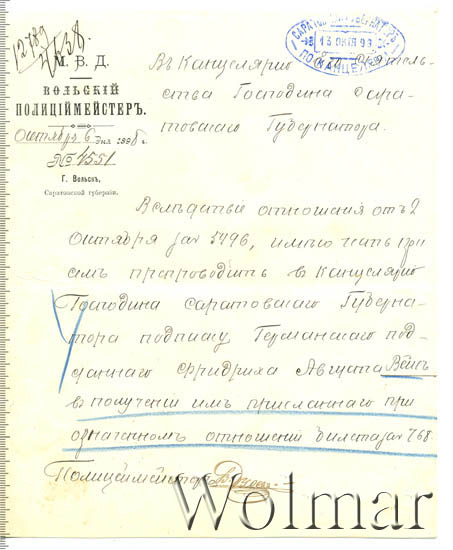 12789
2638
М. В. Д.
ВОЛЬСКІЙ
ПОЛИЦІЙМЕЙСТЕРЪ.
Октября 6 дня 1898 г.
№ 4551
Г. Вольскъ,
Саратовской губерніи.
13 ОКТЯ 98
Въ Канцелярію
ства Господина Сара-
товскаго Губернатора.
Вслѣдствіе отношенія отъ 2
Октября за № 5796, имѣю честь при
семъ препроводить въ Канцелярію
Господина Саратовскаго Губерна-
тора подписку Германскаго под-
даннаго Фридриха Августа
въ полученіи имъ присланнаго при
означенномъ отношеніи билета за № 768.
Полиціймейстеръ
Wolmar